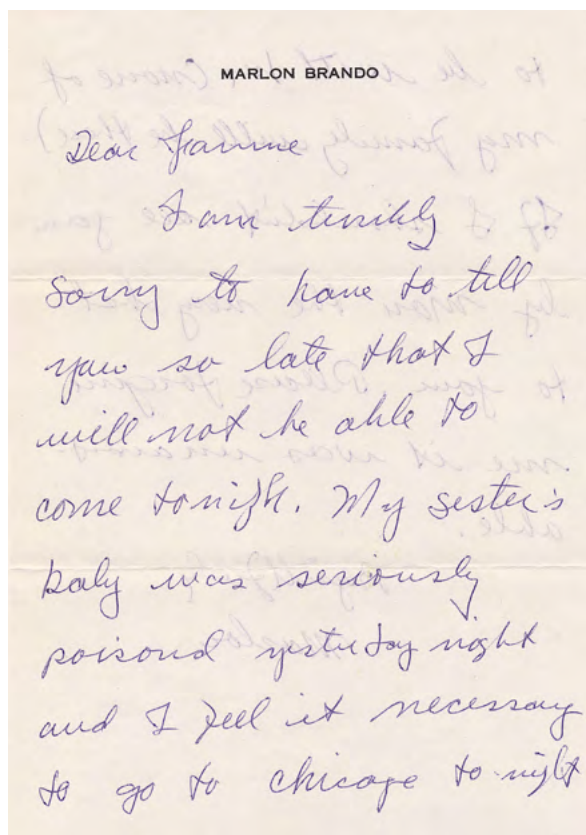 MARLON BRANDO
Dear Jeannine
I am terribly
sorry to have to tell
you so late that I
will not be able to
come tonigh. My sister's
baby was seriously
poisond yesterday night
and I feel it necessary
to go to chicago to-night